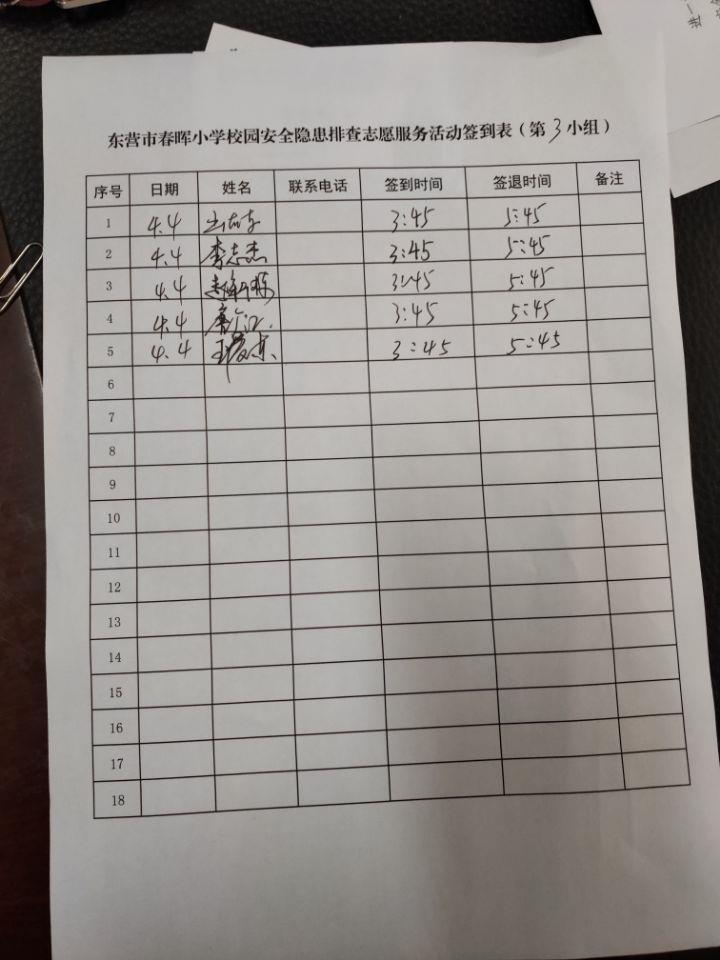 东营市春晖小学校园安全隐患排查志愿服务活动签到表（第3小组）
序号 日期 姓名 联系电话 签到时间 签退时间 备注
1 4.4 3:45 5:45
2 4.4 李志杰 3:45 5:45
3 4.4 3:45 5:45
4 4.4 3:45 5:45
5 4.4 3:45 5:45
6
7
8
9
10
11
12
13
14
15
16
17
18